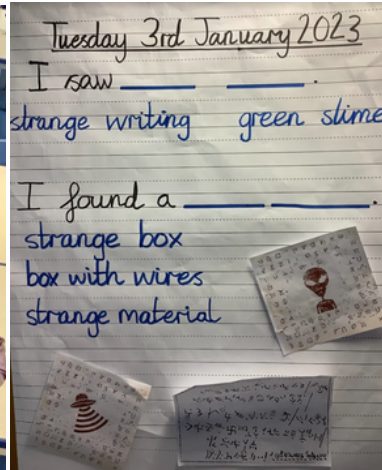 Tuesday 3rd January 2023
I saw ______ ______.
strange writing green slime
I found a ______ ______.
strange box
box with wires
strange material